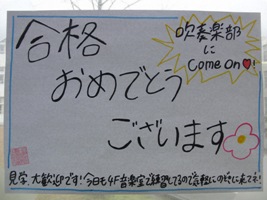 合格
おめでとう
ございます
吹奏楽部
に
Come on♥!
見学、大歓迎です!今日も4F音楽室で練習してるので気軽にのぞきに来てネ!